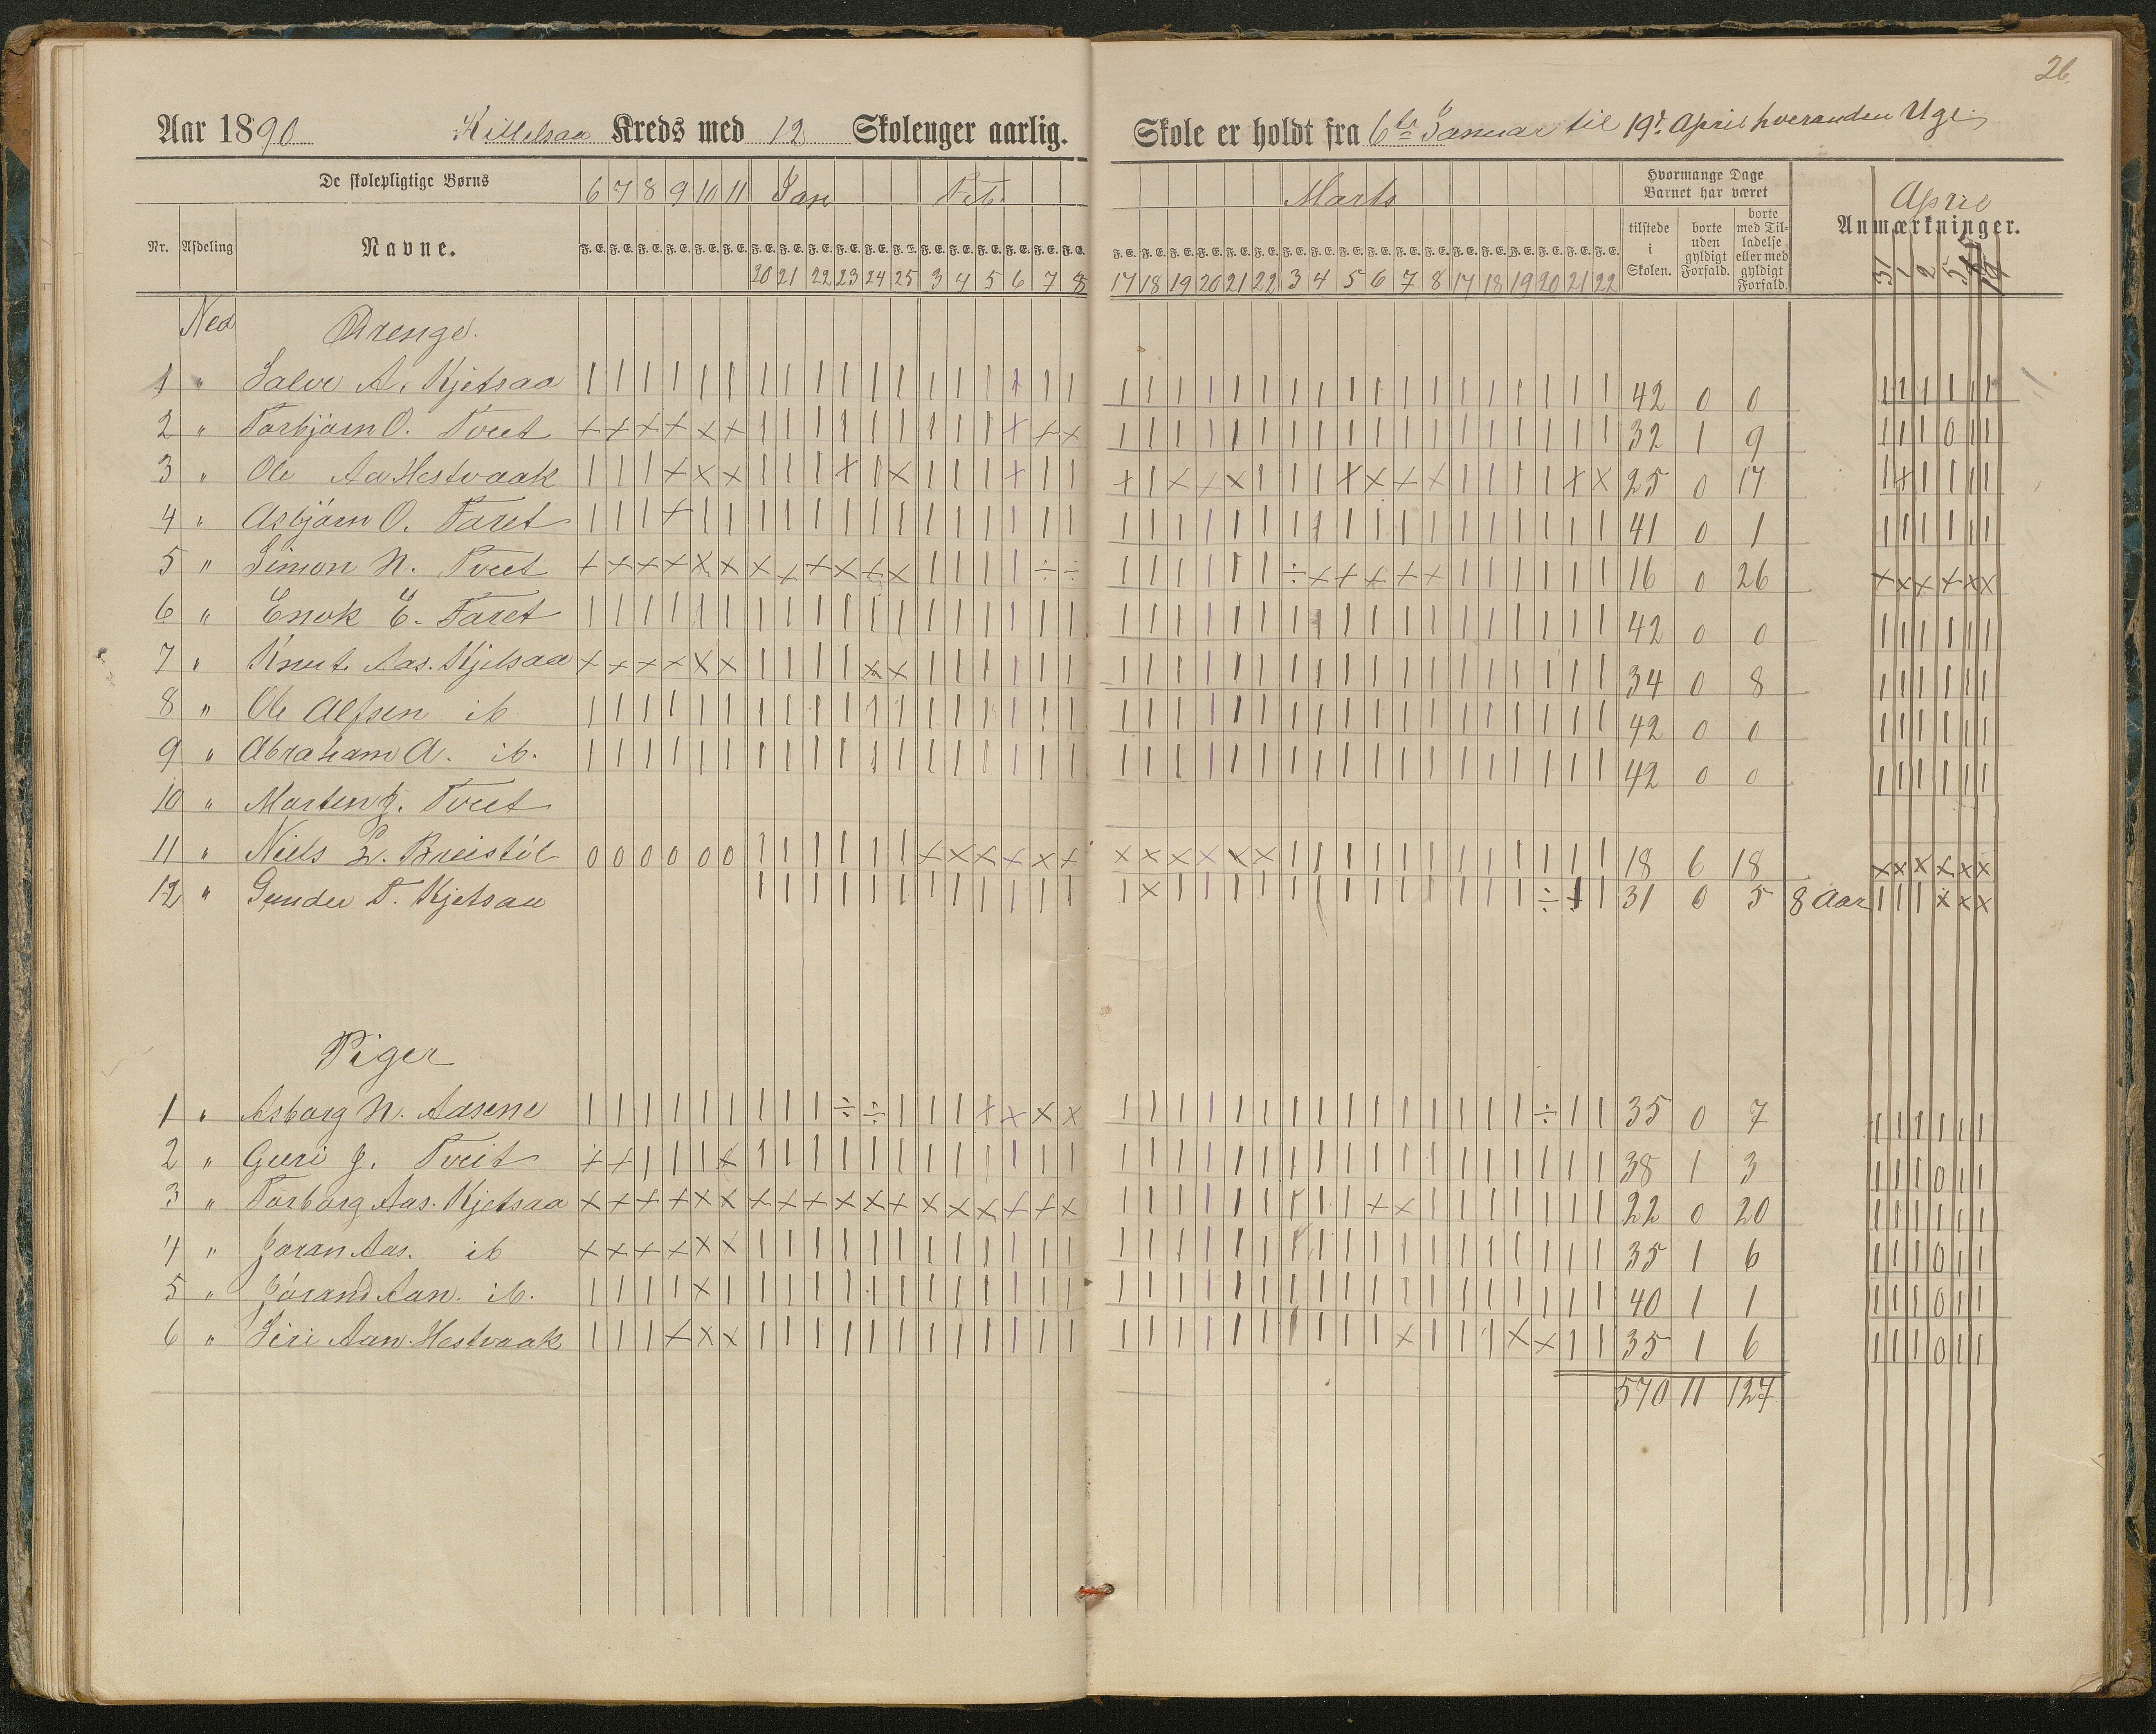 26.
Aar 1890 Kittelsaa Kreds med 12 Skoleuger aarlig.
Skole er holdt fra 6te Januar til 19d. April hveranden Uge
De skolepligtige Børns 6 7 8 9 10 11 Jan Feb.
Marts Hvormange Dage Barnet har været April
Nr. Afdeling Navne. F. E. F. E. F. E. F. E. F. E. F. E. F. E. F. E. F. E. F. E. F. E. F. E. F. E. F. E. F. E. F. E. F. E. F. E.
F. E. F. E. F. E. F. E. F. E. F. E. F. E. F. E. F. E. F. E. F. E. F. E. F. E. F. E. F. E. F. E. F. E. F. E. tilstede i Skolen. borte uden gyldigt Forfald. borte med Tilladelse eller med gyldigt Forfald. Anmærkninger.
20 21 22 23 24 25 3 4 5 6 7 8
17 18 19 20 21 22 3 4 5 6 7 8 17 18 19 20 21 22 31 1 2 5 19
Ned Drenge.
1 " Salve A. Kjetsaa | | | | | | | | | | | | | | | | | | | | | | | | | | | | | | | | | | | | 42 0 0 | | | | | |
2 " Torbjørn O. Tveit + + + + x + | | | | | | | | | + + x | | | | | | | | | | | | | | | | | | 32 1 9 | | | 0 | |
3 " Ole Aa Hestvaak | | | + x x | | | + | x | | | + | | + | x x x | | | + x + x | | | | + x 25 0 17 | + | | | |
4 " Asbjørn O. Faret | | | + | | | | | | | | | | | | | | | | | | | | | | | | | | | | | | | | 41 0 1 | | | | | |
5 " Simon N. Tveit + + + + x x x + + x + x | | | | ÷ ÷ | | | | | | ÷ + + + + + | | | | | | 16 0 26 + x x + x x
6 " Enok E. Faret | | | | | | | | | | | | | | | | | | | | | | | | | | | | | | | | | | | | 42 0 0 | | | | | |
7 " Knut Aas. Kjetsaa + + + + x x | | | | x x | | | | | | | | | | | | | | | | | | | | | | | | 34 0 8 | | | | | |
8 " Ole Alfsen ib | | | | | | | | | | | | | | | | | | | | | | | | | | | | | | | | | | | | 42 0 0 | | | | | |
9 " Abraham A. ib. | | | | | | | | | | | | | | | | | | | | | | | | | | | | | | | | | | | | 42 0 0 | | | | | |
10 " Marten J. Tveit
11 " Niels L. Breistøl 0 0 0 0 0 0 | | | | | | + x x + x + x x x x x x | | | | | | | | | | | | 18 6 18 x x x x x x
12 " Gunder T. Kjetsaa | | | | | | | | | | | | | x | | | | | | | | | | | | | ÷ + | 31 0 5 8 Aar | | | x x x
Piger
1 " Asborg N. Aasene | | | | | | | | | ÷ ÷ | | | + x x x | | | | | | | | | | | | | | | ÷ | | 35 0 7 | | | | | |
2 " Guri J. Tveit + + | | | x | | | | | | | | | | | | | | | | | | | | | | | | | | | | | | 38 1 3 | | | 0 | |
3 " Torborg Aas. Kjetsaa x x x + x x x x + x x + x x x + + x | | | | | | | | | + x | | | | | | | 22 0 20 | | | | | |
4 " Jøran Aas. ib x x x x x x | | | | | | | | | | | | | | | | | | | | | | | | | | | | | | 35 1 6 | | | 0 | |
5 " Jørand Aan. ib. | | | | x | | | | | | | | | | | | | | | | | | | | | | | | | | | | | | | 40 1 1 | | | 0 | |
6 " Siri Aan. Hestvaak | | | + x x | | | | | | | | | | | | | | | | | | | | | | x | | | x x | | 35 1 6 | | | 0 | |
570 11 127